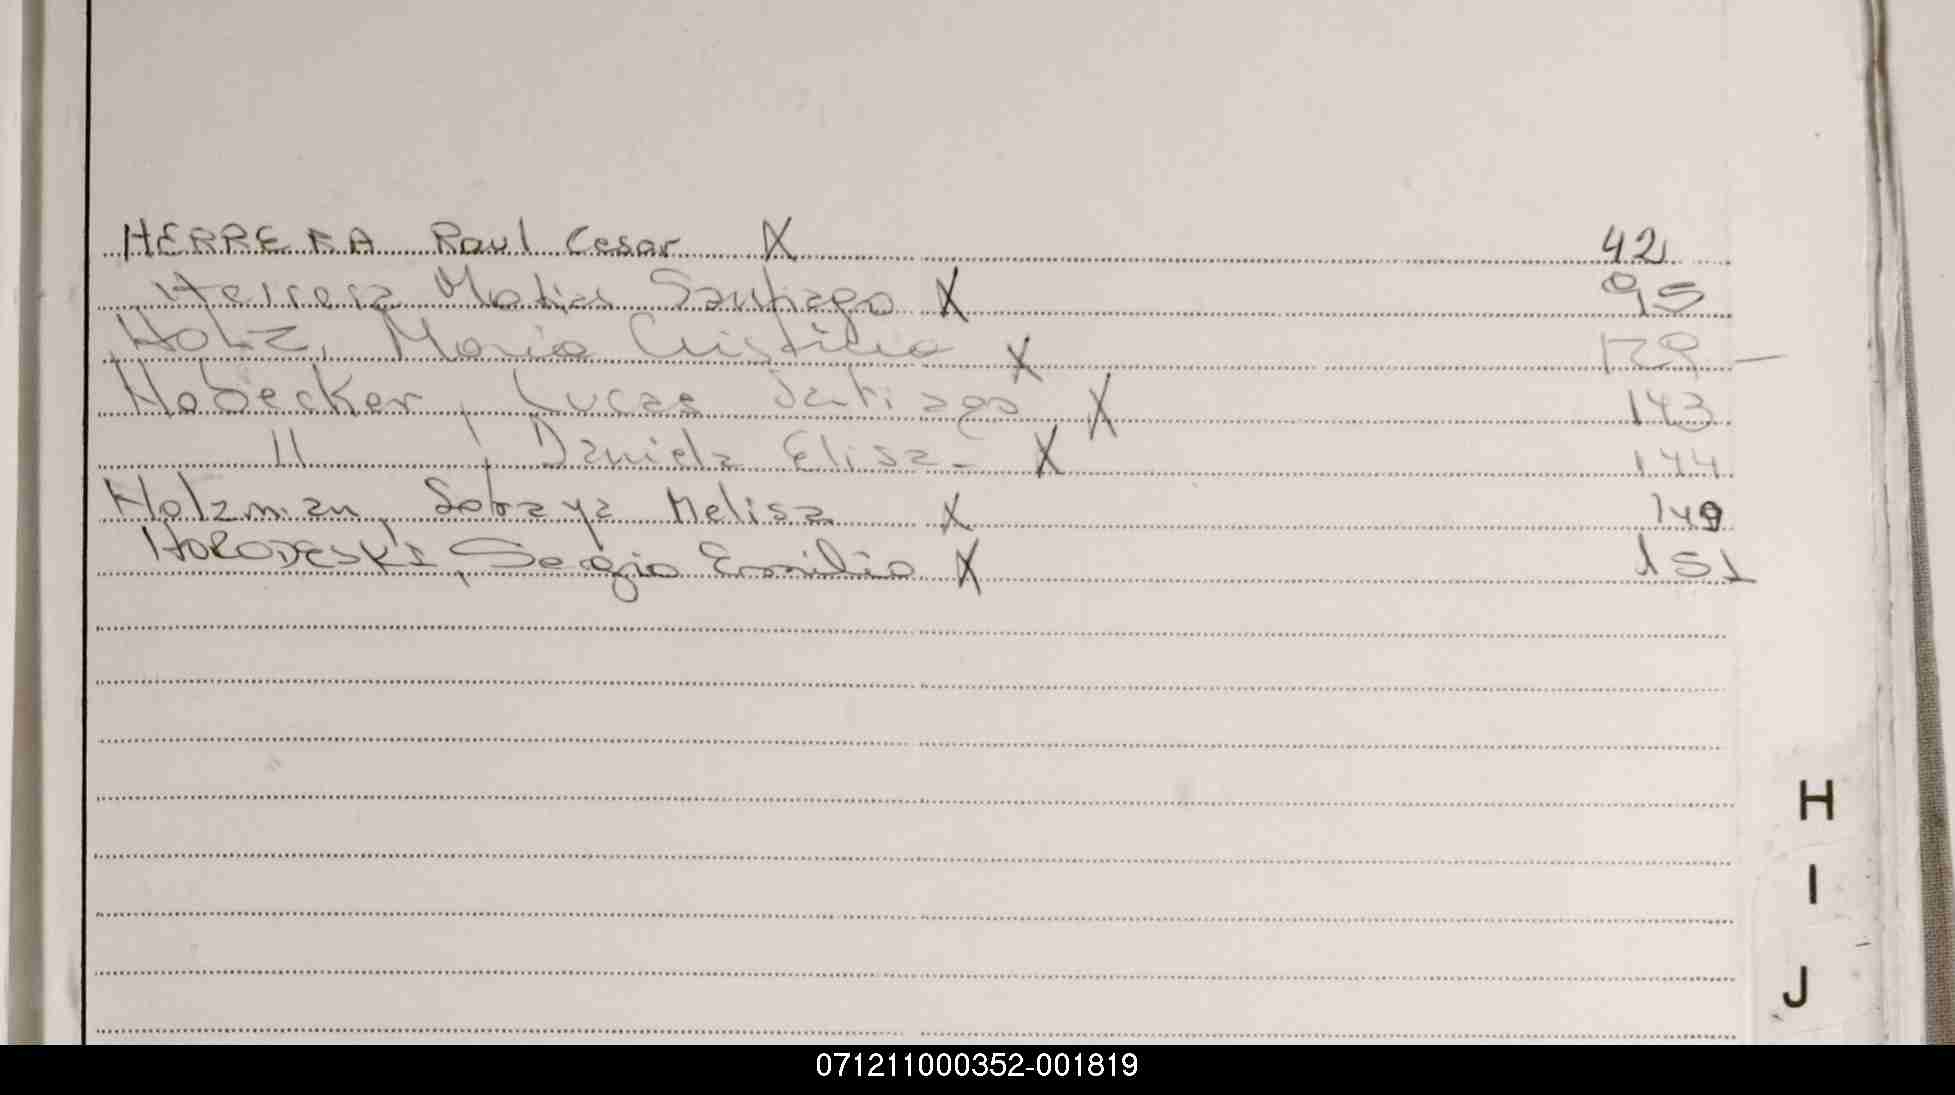 HERRERA Raul Cesar X 42
Herrera Matias Santiago X 95
Holz, Maria Cristina X 129 -
Hobecker, Lucas Santiago X 143
11 , Daniela Elisa - X 144
Holzman, Sobaya Melisa X 149
HORODESKI, Sergio Emilio X 151
H
I
J
071211000352-001819